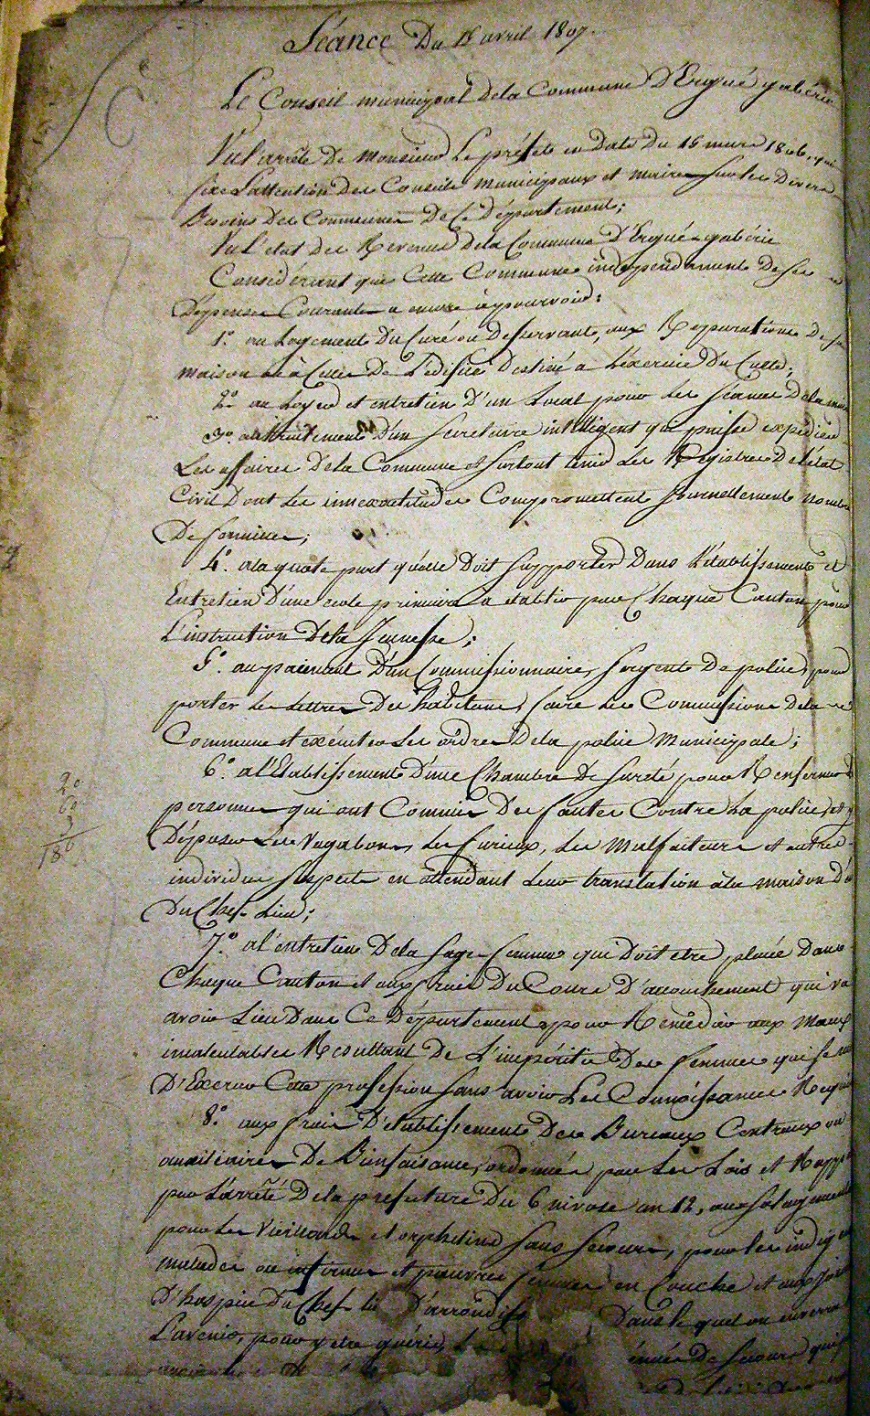 Séance Du 15 avril 1807.
Le Conseil municipal dela Commune D'Ergué gabéric
Vu l'arrêté De monsieur Le préfet en Date Du 15 mars 1806, qui
fixe L'attention des Conseils municipaux et maires Sur les Divers
Besoins Des Communes De Ce Département;
Vu L'etat des Revenus Dela Commune D'Ergué-gabéric
Considérant que Cette Commune independament De Ses
Dépenses Courantes a encore à pourvoir:
1º. au Logement Du Curé ou Desservant, aux Reparations De Sa
maison et à Celles De L'edifice Destiné a L'exercice Du Culte;
2º au Loyer et entretien D'un Local pour les Séances Dela
3º. au traitement D'un Secretaire intelligent qui puisse expédier
Les affaires Dela Commune et Surtout tenir Les Registres De l'état
Civil Dont Les inexactitudes Compromettent Journellement nombre
De familles;
4º. ala quote part qu'elle Doit Supporter Dans L'établissement et
Entretien D'une ecole primaire a etablir par Chaque Canton pour
L'instruction Dela Jeunesse;
5º. au paiement D'un Commissionnaire, Sergent De police, pour
porter Les Lettres Des habitans, faire Les Commissions Dela
Commune et exécuter Les ordres Dela police Municipale;
6º. a l'Etablissement D'une Chambre De Sureté pour Renfermer
personnes qui ont Commis Des fautes Contre La police, et y
Déposer Les Vagabons, Les furieux, Les Malfaiteurs et autres
individus Suspects en attendant Leur translation à la maison
Du Chef-Lieu;
20
60
3
180
7º. a l'entretien Dela Sage-femme qui Doit etre placée Dans
Chaque Canton et aux frais Du Cours D'accouchement qui va
avoir Lieu Dans Ce Département, pour Remédier aux Maux
incalculables Resultant De L'impéritie Des femmes qui se
D'Exercer Cette profession Sans avoir Les Connoissances
8º. aux frais D'etablissement Des Bureaux Centraux ou
auxiliaires De Bienfaisance, ordonnés par Les Lois et
par L'arrêté Dela prefecture Du 6 nivose an 12, au Soulagement
pour Les Vieillards et orphelins Sans Secours, pour les
malades ou infirmes et pauvres femmes en Couche et aux
D'hospice Du Chef-lieu D'arrondiss Dans le quel on enverra
L'avenir, pour y etre guéris, De Secours